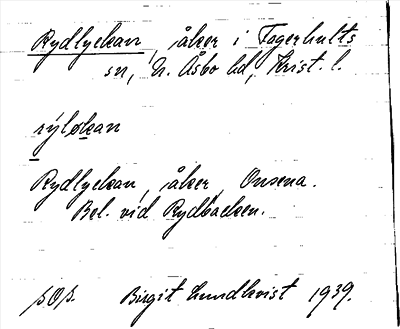 Rydlyckan, åker i Fagerhults
sn, N. Åsbo hd, Krist. l.
rýløkan
Rydlyckan, åker, Onsena.
Bel. vid Rydbacken.
Birgit Lundkvist 1939.